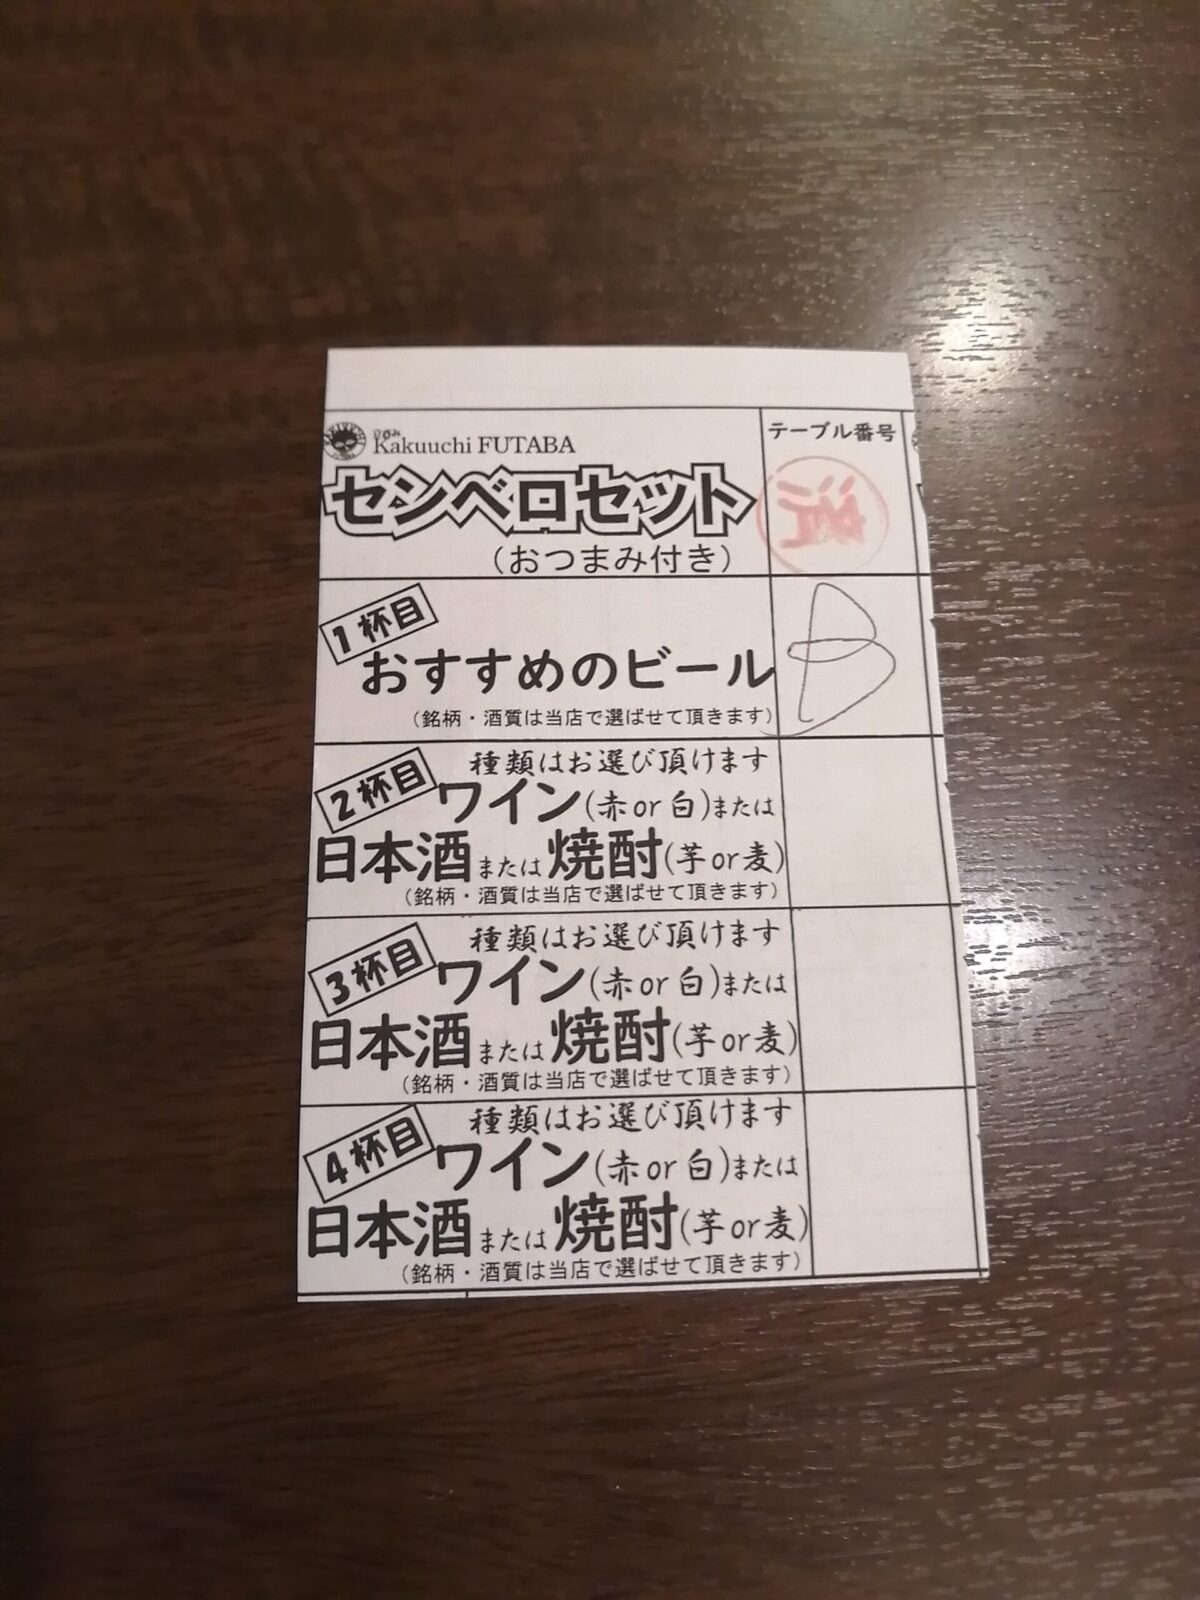 Kakuuchi FUTABA
テーブル番号
センベロセット
済
(おつまみ付き)
1杯目
B
おすすめのビール
(銘柄・酒質は当店で選ばせて頂きます)
種類はお選び頂けます
2杯目
ワイン(赤or白)または
日本酒または焼酎(芋or麦)
(銘柄・酒質は当店で選ばせて頂きます)
種類はお選び頂けます
3杯目
ワイン(赤or白)または
日本酒または焼酎(芋or麦)
(銘柄・酒質は当店で選ばせて頂きます)
種類はお選び頂けます
4杯目
ワイン(赤or白)または
日本酒または焼酎(芋or麦)
(銘柄・酒質は当店で選ばせて頂きます)